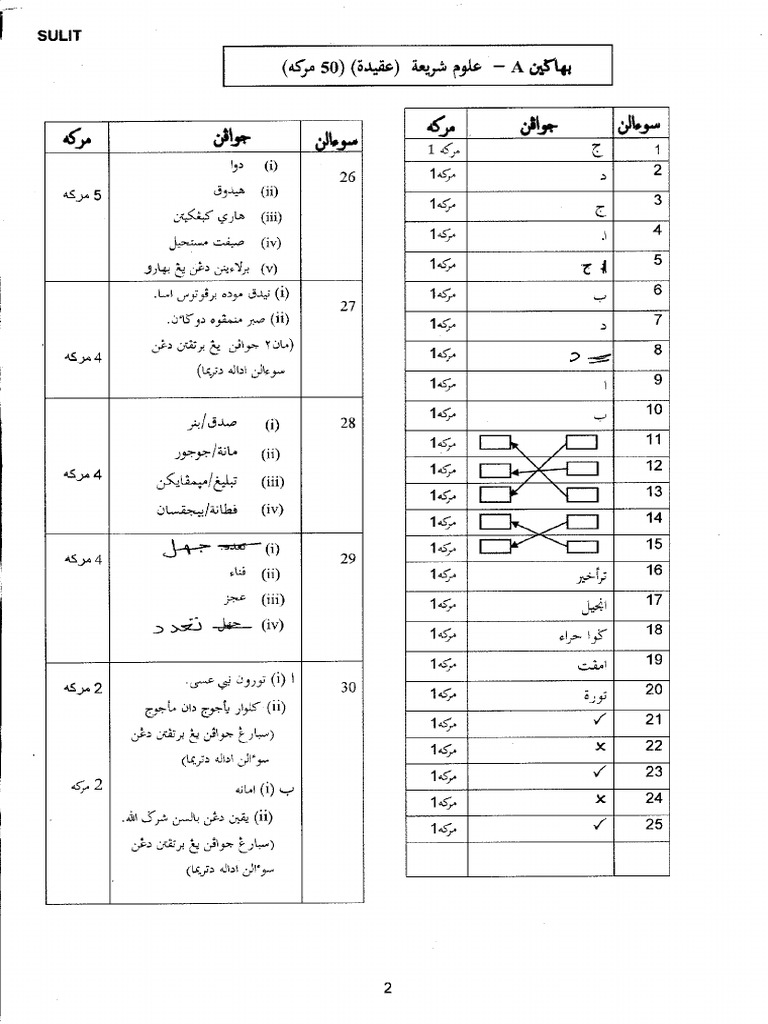 SULIT
بهاڬين A – علوم شريعة (عقيدة) (50 مركه)
سوءالن جواڤن مركه
1 ج مركه 1
2 د مركه1
3 ج مركه1
4 ا مركه1
5 ج مركه1
6 ب مركه1
7 د مركه1
8 د مركه1
9 ا مركه1
10 ب مركه1
11 مركه1
12 مركه1
13 مركه1
14 مركه1
15 مركه1
16 ترأخير مركه1
17 انجيل مركه1
18 ڬوا حراء مركه1
19 امڤت مركه1
20 توراة مركه1
21 ✓ مركه1
22 x مركه1
23 ✓ مركه1
24 x مركه1
25 ✓ مركه1
سوءالن جواڤن مركه
26 (i) دوا
(ii) هيدوق
5 مركه
(iii) هاري كبڠكيتن
(iv) صيفت مستحيل
(v) برلاءينن دڠن يڠ بهارو
27 (i) تيدق موده برڤوتوس اسا.
(ii) صبر منمڤوه دوكاٴن.
(مان٢ جواڤن يڠ برتڤتن دڠن
4 مركه
سوءالن اداله دتريما)
28 (i) صدق/بنر
(ii) مانة/جوجور
4 مركه
(iii) تبليغ/ميمڤايكن
(iv) فطانة/بيجقسان
29 (i) تعدد جهل 4 مركه
(ii) فناء
(iii) عجز
(iv) جهل تعدد
30 ا (i) تورون نبي عسى. 2 مركه
(ii) كلوار يأجوج دان مأجوج
(سبارڠ جواڤن يڠ برتڤتن دڠن
سوءالن اداله دتريما)
ب (i) امانه 2 مركه
(ii) يقين دڠن بالسن شركـ الله.
(سبارڠ جواڤن يڠ برتڤتن دڠن
سوءالن اداله دتريما)
2